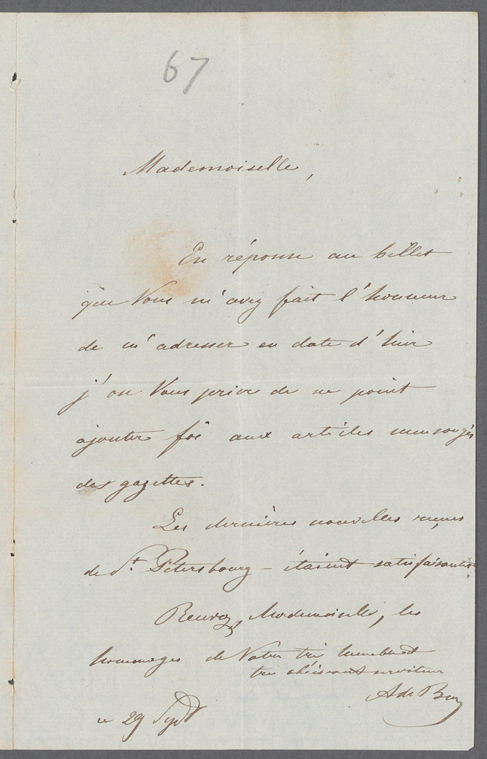 67
Mademoiselle,
En réponse au billet
que Vous m'avez fait l'honneur
de m'adresser en date d'hier
j'ose Vous prier de ne point
ajouter foi aux articles mensongers
des gazettes.
Les dernières nouvelles reçues
de St. Pétersbourg – étaient satisfaisantes.
Recevez, Mademoiselle, les
hommages de Votre très humble et
très obéissant serviteur
A de
ce 29 Sept